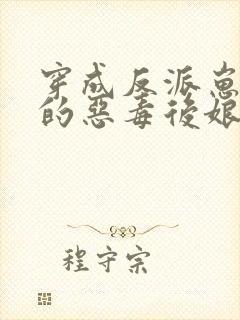 穿成反派崽
的惡毒後娘
程守宗